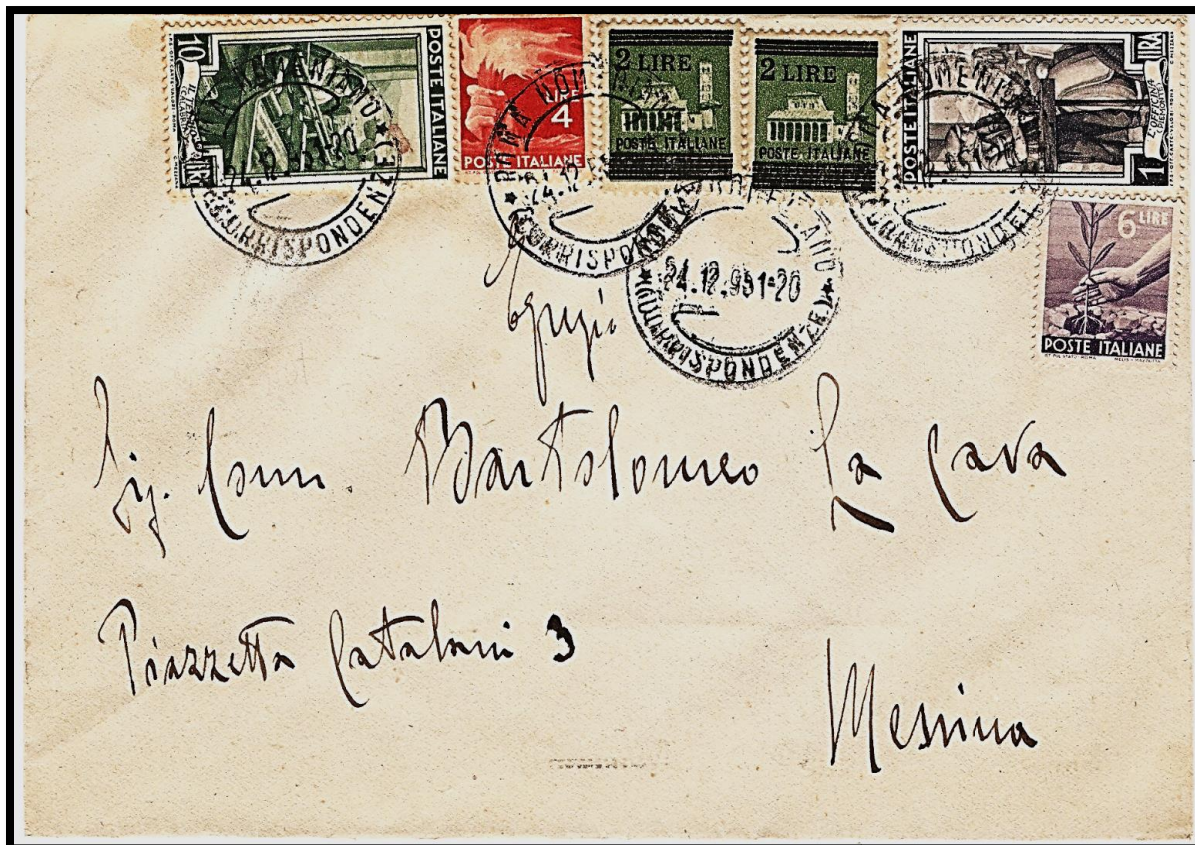 10
LIRE
POSTE ITALIANE
LIRE
4
POSTE ITALIANE
2 LIRE
POSTE ITALIANE
2 LIRE
POSTE ITALIANE
POSTE ITALIANE
1
LIRA
6 LIRE
POSTE ITALIANE
ROMA NOMENTANO
24.12.951-20
(CORRISPONDENZE)
Sig. Comm. Bartolomeo La Cava
Piazzetta Catalani 3
Messina